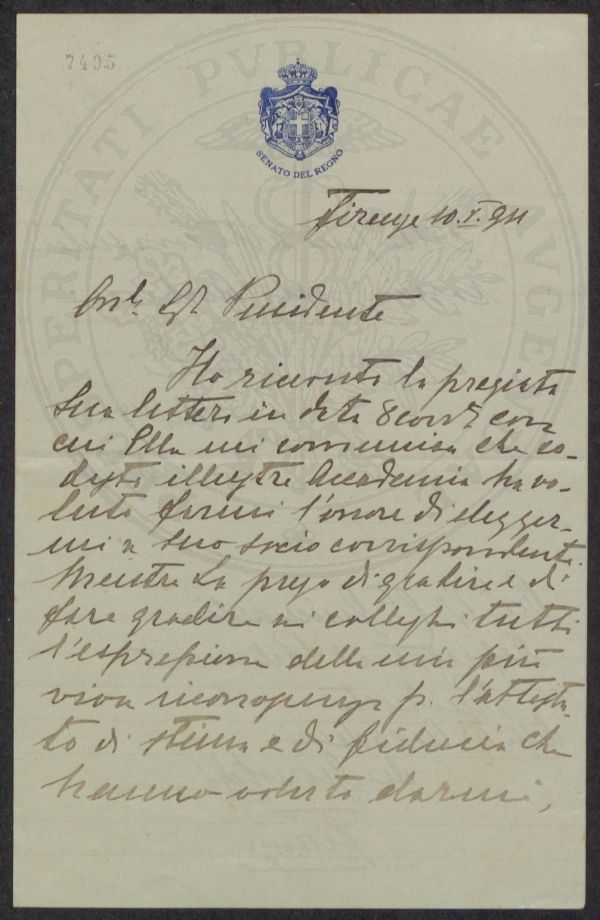 7495
PROSPERITATI PVBLICAE AVGENDAE
SENATO DEL REGNO
Firenze 10.V.911
Presidente
Ho ricevuto la pregiata
Sua lettera in data 8 corr. con
cui Ella mi comunica che co-
desta illustre Accademia ha vo-
luto farmi l'onore di elegger-
mi a suo socio corrispondente.
Mentre La prego di gradire e di
fare gradire ai colleghi tutti
l'espressione della mia più
viva riconoscenza p. l'attesta-
to di stima e di fiducia che
hanno voluto darmi,